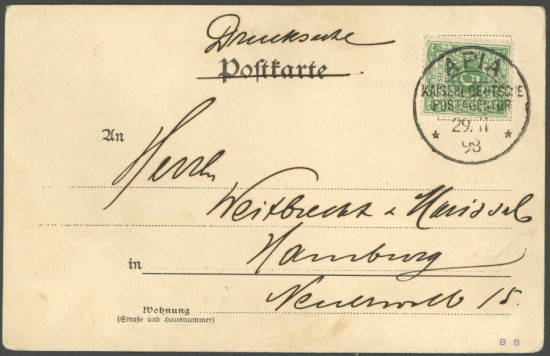 Drucksache
Postkarte
APIA
KAISERL. DEUTSCHE
POSTAGENTUR
29. 11
98
An
Herrn
Weitbrecht & Marissal
Hamburg
in
15.
Wohnung
(Straße und Hausnummer)
B B